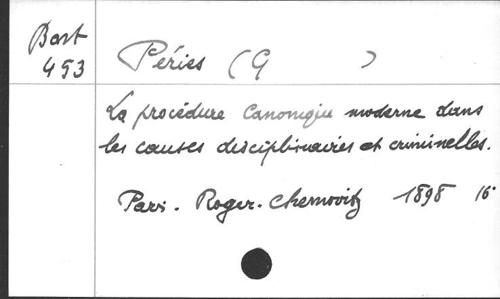 Bart
493
Périès (G )
La procédure canonique moderne dans
les causes disciplinaires et criminelles.
Paris. Roger. Chernovitz 1898 16°